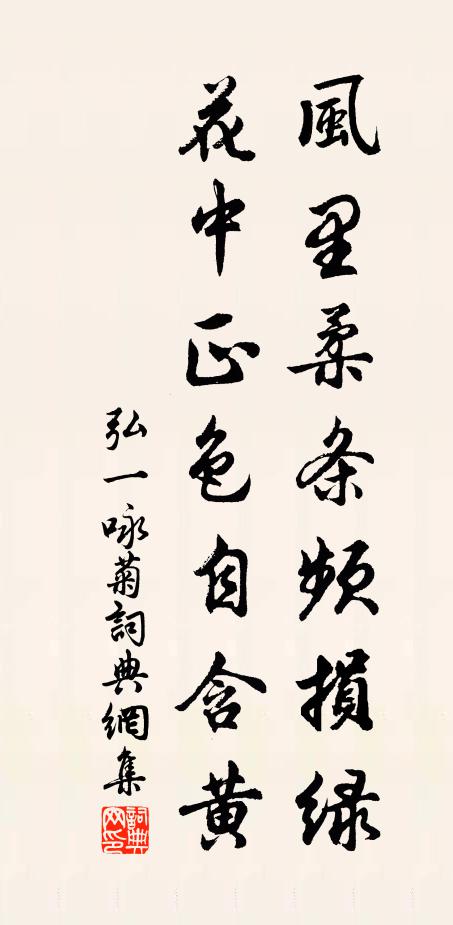 風里柔条頻損緑
花中正色自含黄
弘一咏菊詞典網集
詞典网印